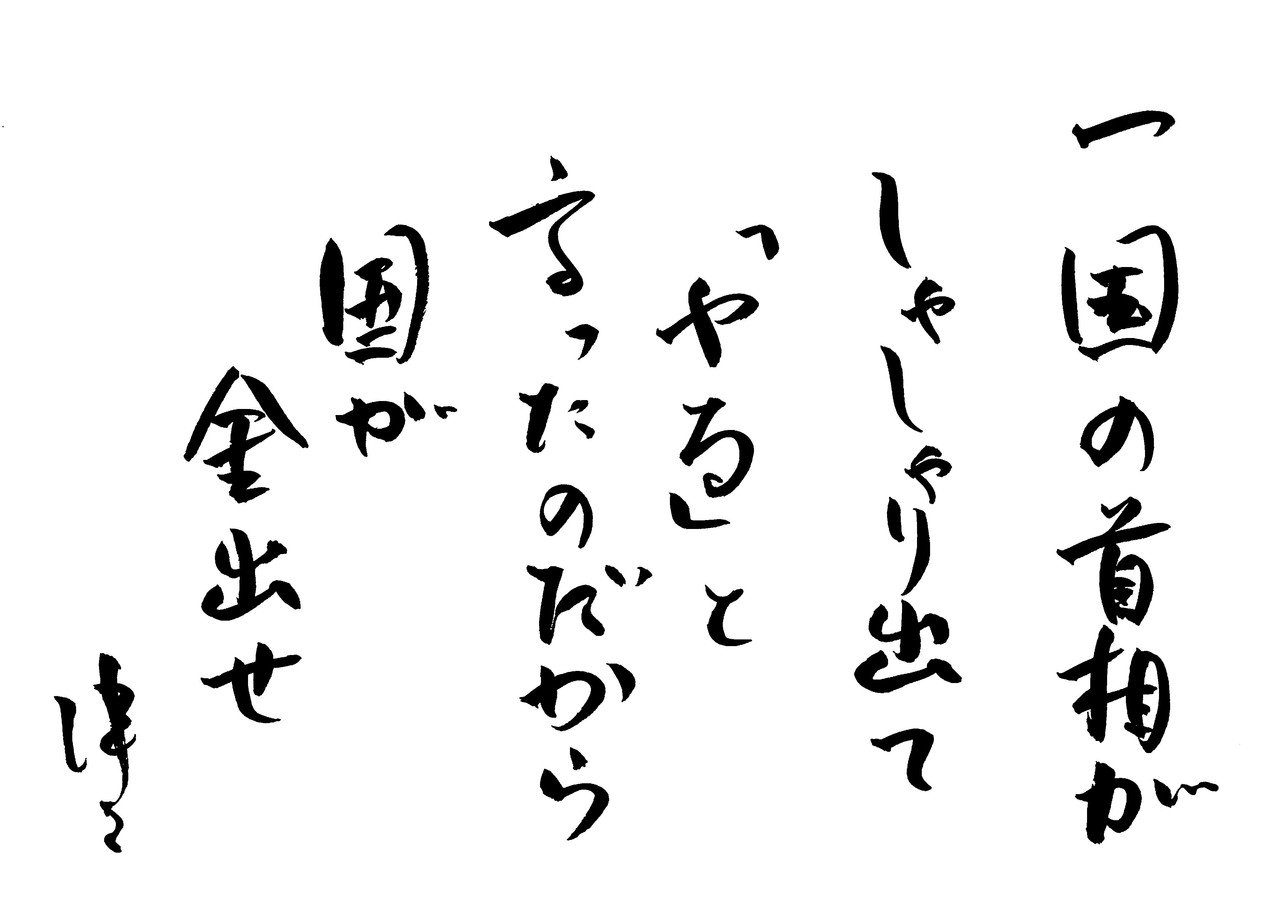 一国の首相が
しゃしゃり出て
「やる」と
言ったのだから
国が
金出せ